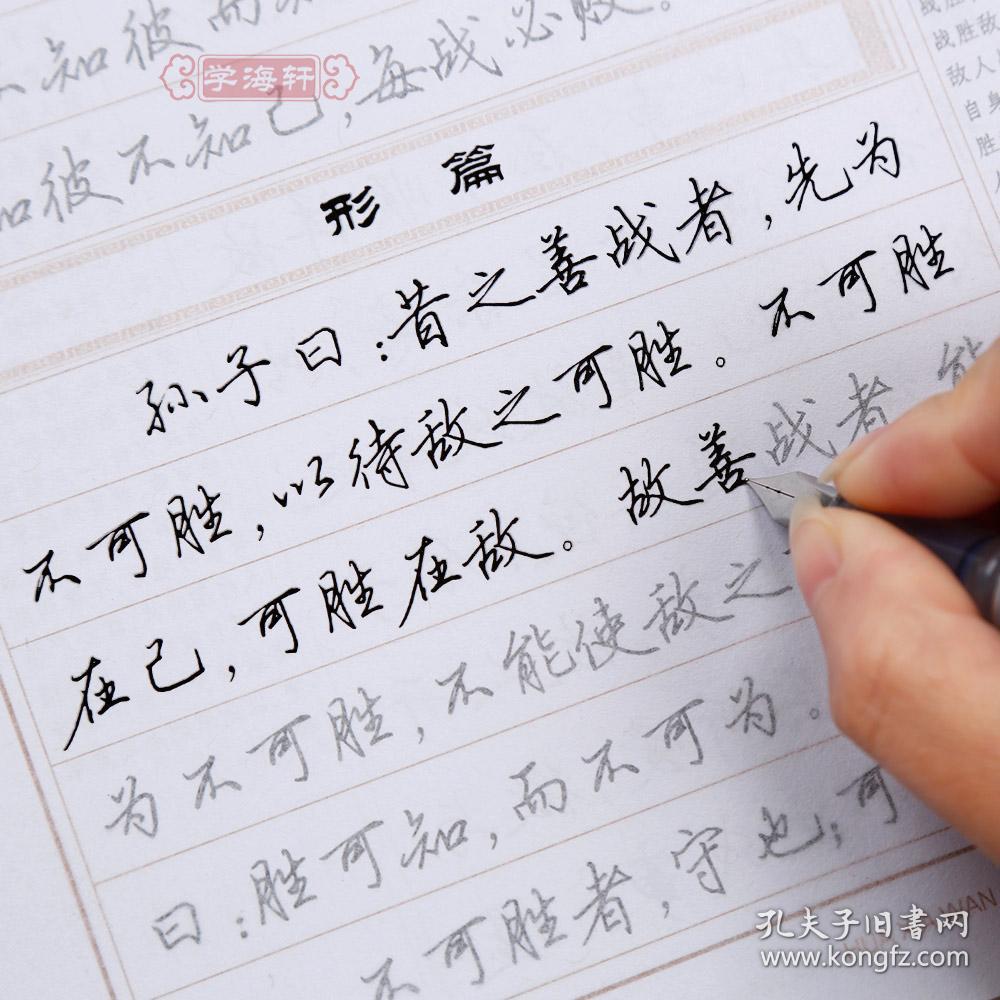 知彼而
学海轩
知彼不知己，每战必败。
形篇
孙子曰：昔之善战者，先为
不可胜，以待敌之可胜。不可胜
在己，可胜在敌。故善战者
为不可胜，不能使敌之
曰：胜可知，而不可为。
不可胜者，守也；可
战胜敌
敌人
自身
胜
WAN
孔夫子旧书网
www.kongfz.com